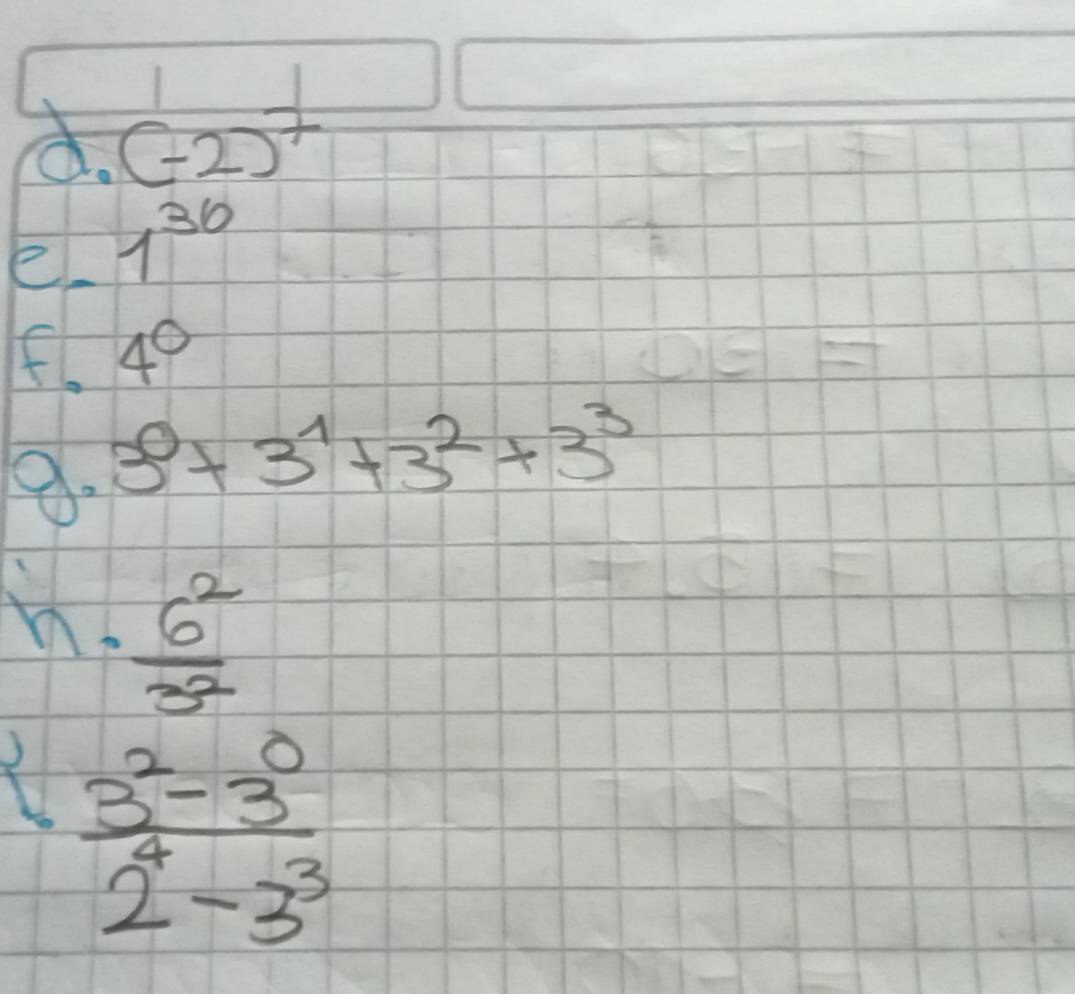 d. (-2)⁷
e. 1³⁶
f. 4⁰
g. 3⁰ + 3¹ + 3² + 3³
h. 6²/3²
i. (3² - 3⁰)/(2⁴ - 3³)